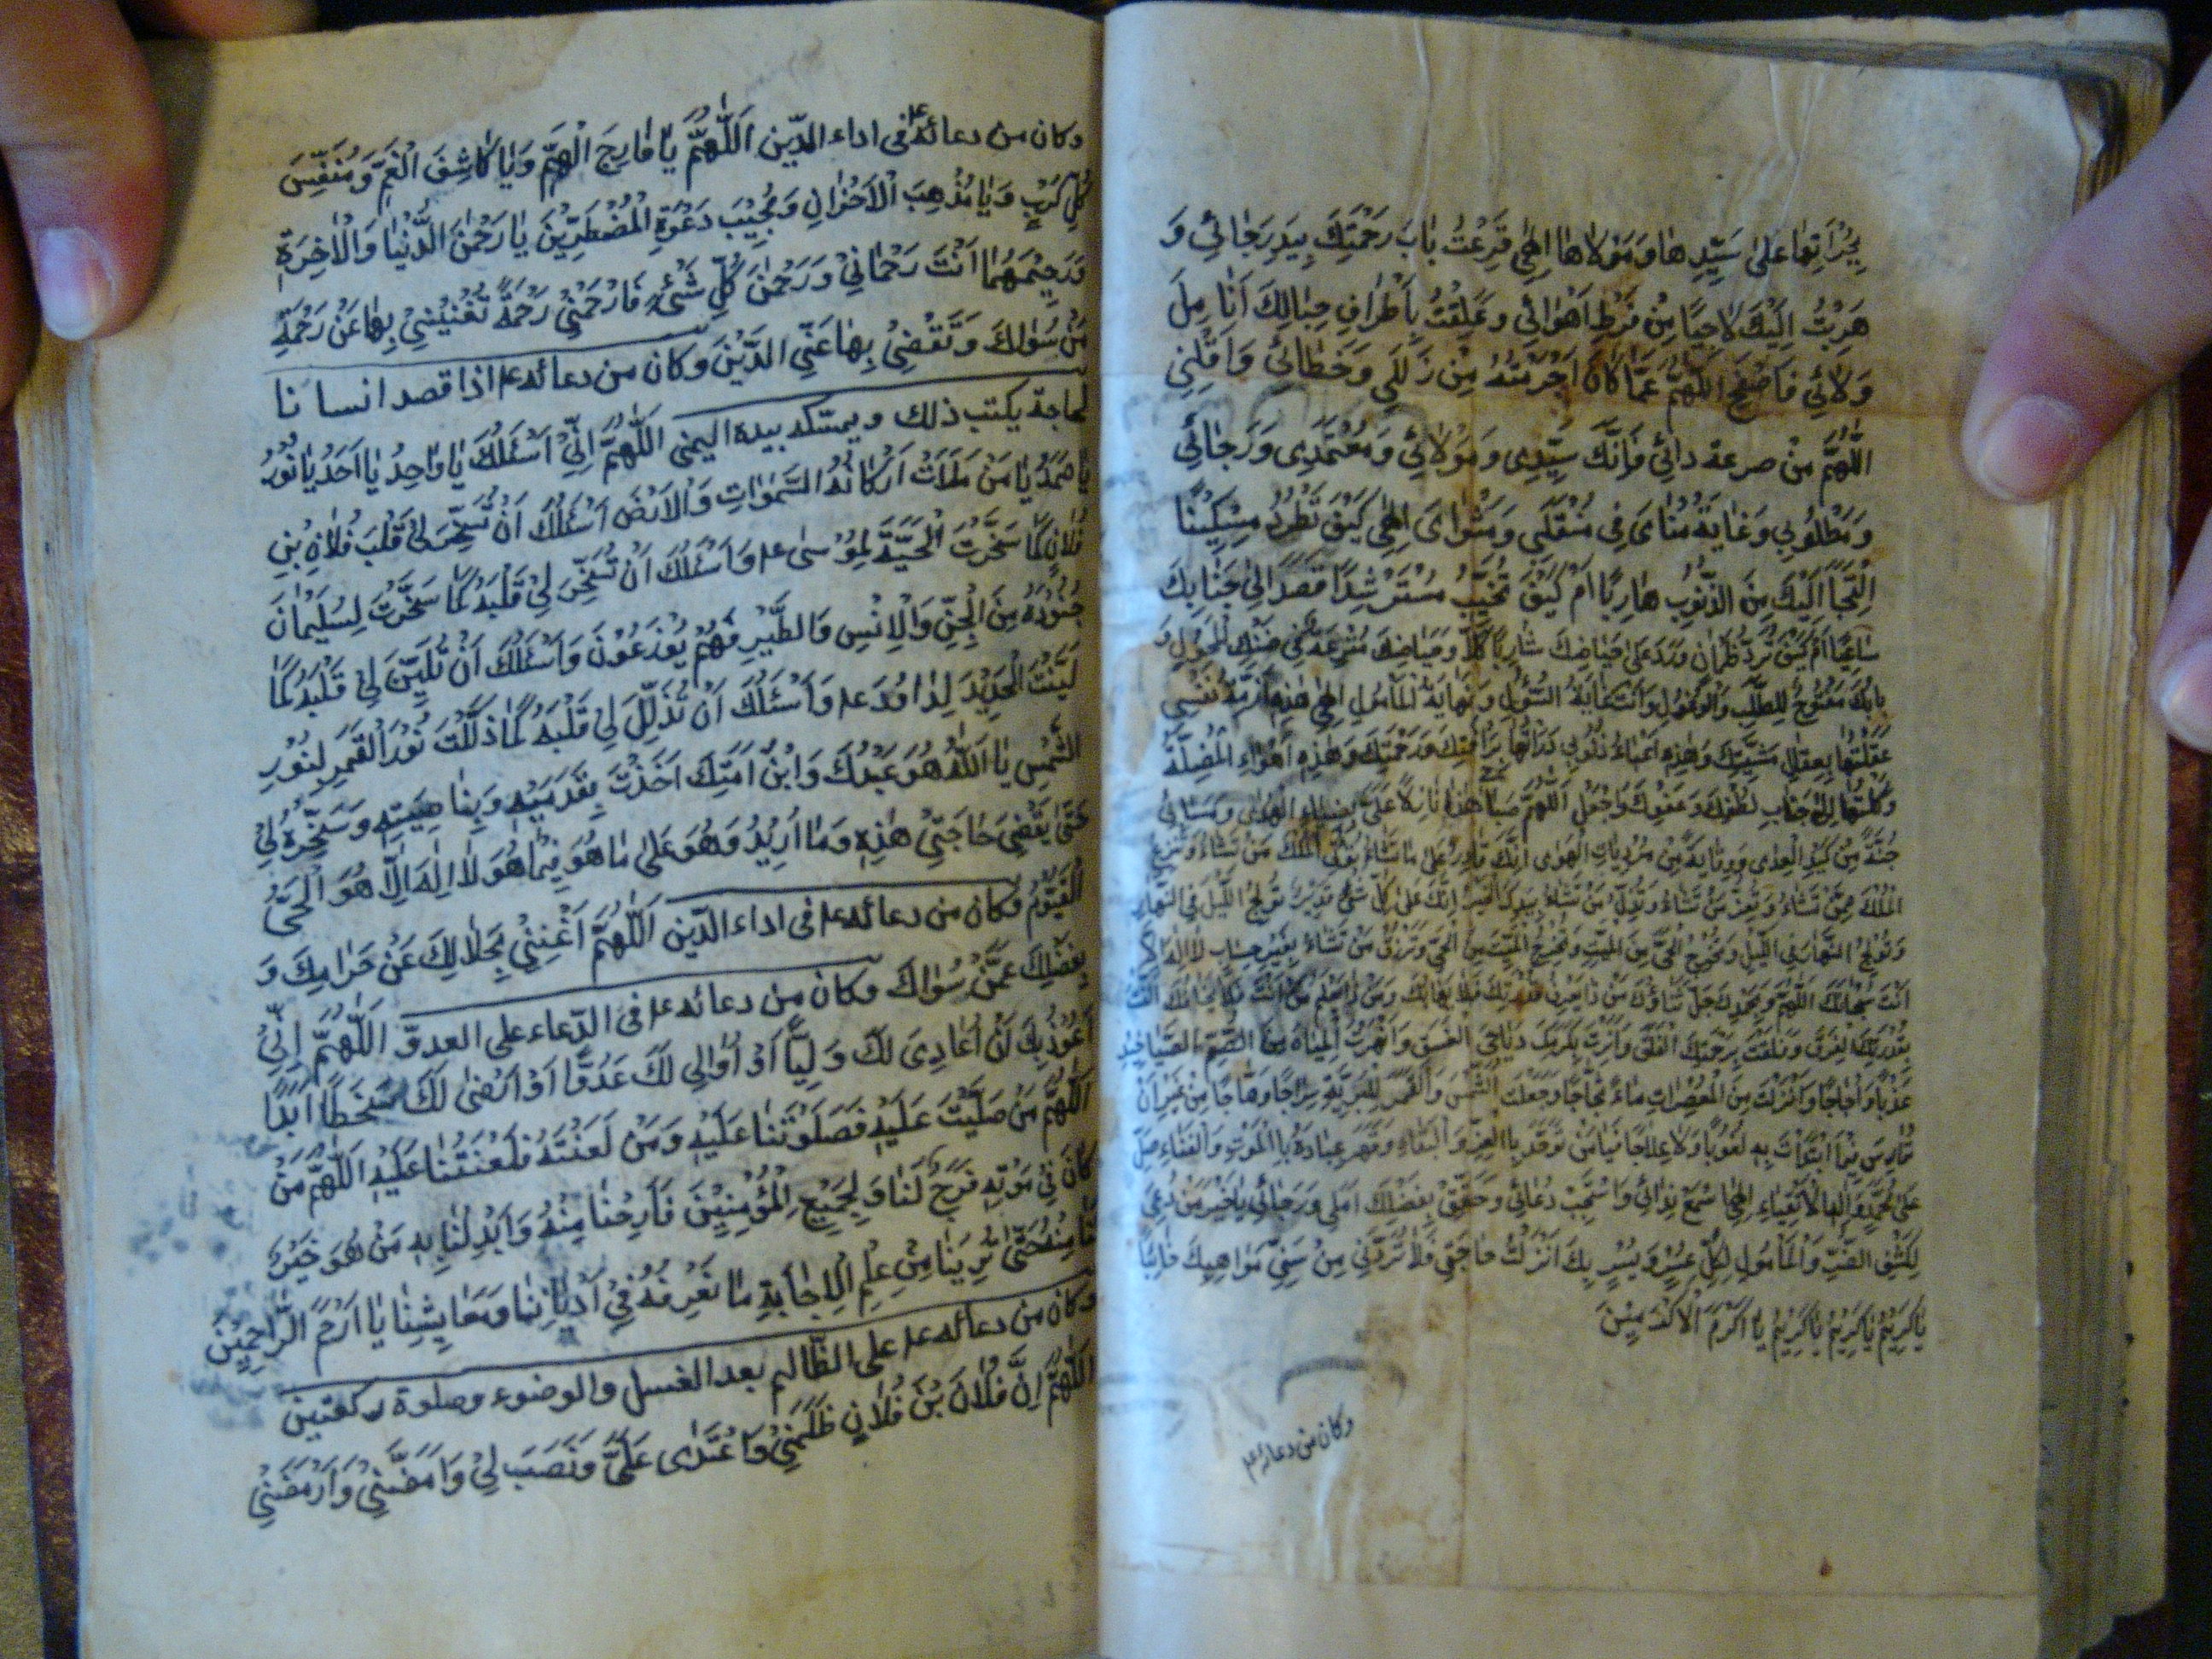 بِجُرْاَتِهٰا عَلىٰ سَيِّدِهٰا وَمَوْلاٰهٰا اِلٰهِي قَرَعْتُ بٰابَ رَحْمَتِكَ بِيَدِ رَجٰائِي وَ
هَرَبْتُ اِلَيْكَ لاٰجِئًا مِنْ فَرْطِ اَهْوٰائِي وَعَلَّقْتُ بِاَطْرٰافِ حِبٰالِكَ اَنٰامِلَ
وَلاٰئِي فَاصْفَحِ اللّٰهُمَّ عَمّٰا كٰانَ اَجْرَمْتُهُ مِنْ زَلَلِي وَخَطٰائِي وَاَقِلْنِي
اَللّٰهُمَّ مِنْ صرعة دائي فَاِنَّكَ سَيِّدِي وَمَوْلاٰئِي وَمُعْتَمَدِي وَرَجٰائِي
وَمَطْلُوبِي وَغٰايَةُ مُنٰاىَ فِي مُنْقَلَبِي وَمَثْوٰاىَ اِلٰهِي كَيْفَ تَطْرُدُ مِسْكِينًا
اِلْتَجَأَ اِلَيْكَ مِنَ الذُّنُوبِ هٰارِبًا اَمْ كَيْفَ تُخَيِّبُ مُسْتَرْشِدًا قَصَدَ اِلىٰ جَنٰابِكَ
سٰاعِيًا اَمْ كَيْفَ تَرُدُّ ظَمْاٰنَ وَرَدَ عَلىٰ حِيٰاضِكَ شٰارِبًا كَلاّٰ وَحِيٰاضُكَ مُتْرَعَةٌ فِي ضَنْكِ الْمُحُولِ وَ
بٰابُكَ مَفْتُوحٌ لِلطَّلَبِ وَالْوُغُولِ وَاَنْتَ غٰايَةُ السُّؤْلِ وَنِهٰايَةُ الْمَأْمُولِ اِلٰهِي هٰذِهِ اَزِمَّةُ نَفْسِي
عَقَلْتُهٰا بِعِقٰالِ مَشِيَّتِكَ وَهٰذِهِ اَعْبٰاءُ ذُنُوبِي دَرَأْتُهٰا بِرَأْفَتِكَ وَرَحْمَتِكَ وَهٰذِهِ اَهْوٰاءِ الْمُضِلَّةُ
وَكَلْتُهٰا اِلىٰ جَنٰابِ لُطْفِكَ وَعَفْوِكَ فَاجْعَلِ اللّٰهُمَّ صَبٰاحِي هٰذٰا نٰازِلاً عَلَيَّ بِضِيٰاءِ الْهُدىٰ وَمَسٰائِي
جُنَّةً مِنْ كَيْدِ الْعِدىٰ وَوِقٰايَةً مِنْ مُرْدِيٰاتِ الْهَوىٰ اِنَّكَ قٰادِرٌ عَلىٰ مٰا تَشٰاءُ تُؤْتِي الْمُلْكَ مَنْ تَشٰاءُ وَتَنْزِعُ
الْمُلْكَ مِمَّنْ تَشٰاءُ وَتُعِزُّ مَنْ تَشٰاءُ وَتُذِلُّ مَنْ تَشٰاءُ بِيَدِكَ الْخَيْرُ اِنَّكَ عَلىٰ كُلِّ شَيْءٍ قَدِيرٌ تُولِجُ اللَّيْلَ فِي النَّهٰارِ
وَتُولِجُ النَّهٰارَ فِي اللَّيْلِ وَتُخْرِجُ الْحَيَّ مِنَ الْمَيِّتِ وَتُخْرِجُ الْمَيِّتَ مِنَ الْحَيِّ وَتَرْزُقُ مَنْ تَشٰاءُ بِغَيْرِ حِسٰابٍ لاٰ اِلٰهَ اِلاّٰ
اَنْتَ سُبْحٰانَكَ اللّٰهُمَّ وَبِحَمْدِكَ جَلَّ ثَنٰاؤُكَ مَنْ ذٰا يَعْرِفُ قُدْرَتَكَ فَلاٰ يَخٰافُكَ وَمَنْ ذٰا يَعْلَمُ مٰا اَنْتَ فَلاٰ يَهٰابُكَ
بِقُدْرَتِكَ الْفِرَقَ وَفَلَقْتَ بِرَحْمَتِكَ الْفَلَقَ وَاَنَرْتَ بِكَرَمِكَ دَيٰاجِيَ الْغَسَقِ وَاَنْهَرْتَ الْمِيٰاهَ مِنَ الصُّمِّ الصَّيٰاخِيدِ
عَذْبًا وَاُجٰاجًا وَاَنْزَلْتَ مِنَ الْمُعْصِرٰاتِ مٰاءً ثَجّٰاجًا وَجَعَلْتَ الشَّمْسَ وَالْقَمَرَ لِلْبَرِيَّةِ سِرٰاجًا وَهّٰاجًا مِنْ غَيْرِ اَنْ
تُمٰارِسَ فِيمَا ابْتَدَأْتَ بِهِ لُغُوبًا وَلاٰ عِلاٰجًا فَيٰا مَنْ تَوَحَّدَ بِالْعِزِّ وَالْبَقٰاءِ وَقَهَرَ عِبٰادَهُ بِالْمَوْتِ وَالْفَنٰاءِ صَلِّ
عَلىٰ مُحَمَّدٍ وَاٰلِهِ الْاَتْقِيٰاءِ اِلٰهِي اسْمَعْ نِدٰائِي وَاسْتَجِبْ دُعٰائِي وَحَقِّقْ بِفَضْلِكَ اَمَلِي وَرَجٰائِي يٰا خَيْرَ مَنْ دُعِيَ
لِكَشْفِ الضُّرِّ وَالْمَأْمُولِ لِكُلِّ عُسْرٍ وَيُسْرٍ بِكَ اَنْزَلْتُ حٰاجَتِي فَلاٰ تَرُدَّنِي مِنْ سَنِيِّ مَوٰاهِبِكَ خٰائِبًا
يٰا كَرِيمُ يٰا كَرِيمُ يٰا كَرِيمُ يٰا اَكْرَمَ الْاَكْرَمِيْنَ
وكان من دعائه ع
وكان من دعائه ع فى اداء الدّين اَللّٰهُمَّ يٰا فٰارِجَ الْهَمِّ وَيٰا كٰاشِفَ الْغَمِّ وَمُنَفِّسَ
كُلِّ كَرْبٍ وَيٰا مُذْهِبَ الْاَحْزٰانِ وَمُجِيْبَ دَعْوَةِ الْمُضْطَرِّيْنَ يٰا رَحْمٰنَ الدُّنْيٰا وَالْاٰخِرَةِ
وَرَحِيْمَهُمٰا اَنْتَ رَحْمٰانِيْ وَرَحْمٰنُ كُلِّ شَيْءٍ فَارْحَمْنِيْ رَحْمَةً تُغْنِيْنِيْ بِهٰا عَنْ رَحْمَةِ
مَنْ سُوٰاكَ وَتَقْضِيْ بِهٰا عَنِّي الدَّيْنَ وكان من دعائه ع اذا قصد انسانا
لحاجة يكتب ذلك ويمسكه بيده اليمنى اَللّٰهُمَّ اِنِّيْ اَسْئَلُكَ يٰا وٰاحِدُ يٰا اَحَدُ يٰا نُوْرُ
يٰا صَمَدُ يٰا مَنْ مَلَأَتْ اَرْكٰانُهُ السَّمٰوٰاتِ وَالْاَرْضَ اَسْئَلُكَ اَنْ تُسَخِّرَ لِيْ قَلْبَ فُلاٰنِ بْنِ
فُلاٰنٍ كَمٰا سَخَّرْتَ الْحَيَّةَ لِمُوْسىٰ ع وَاَسْئَلُكَ اَنْ تُسَخِّرَ لِيْ قَلْبَهُ كَمٰا سَخَّرْتَ لِسُلَيْمٰانَ
جُنُوْدَهُ مِنَ الْجِنِّ وَالْاِنْسِ وَالطَّيْرِ فَهُمْ يُوْزَعُوْنَ وَاَسْئَلُكَ اَنْ تُلَيِّنَ لِيْ قَلْبَهُ كَمٰا
لَيَّنْتَ الْحَدِيْدَ لِدٰاوُدَ ع وَاَسْئَلُكَ اَنْ تُذَلِّلَ لِيْ قَلْبَهُ كَمٰا ذَلَّلْتَ نُوْرَ الْقَمَرِ لِنُوْرِ
الشَّمْسِ يٰا اَللّٰهُ هُوَ عَبْدُكَ وَابْنُ اَمَتِكَ اَخَذْتَ بِقَدَمَيْهِ وَبِنٰاصِيَتِهِ وَسَخِّرْهُ لِيْ
حَتّٰى يَقْضِيَ حٰاجَتِيْ هٰذِهِ وَمٰا اُرِيْدُ وَهُوَ عَلىٰ مٰا هُوَ فِيْمٰا هُوَ لاٰ اِلٰهَ اِلاّٰ هُوَ الْحَيُّ
الْقَيُّوْمُ وكان من دعائه ع فى اداء الدّين اَللّٰهُمَّ اَغْنِنِيْ بِحَلاٰلِكَ عَنْ حَرٰامِكَ وَ
بِفَضْلِكَ عَمَّنْ سُوٰاكَ وكان من دعائه ع فى الدّعاء على العدوّ اَللّٰهُمَّ اِنِّيْ
اَعُوْذُ بِكَ اَنْ اُعٰادِيَ لَكَ وَلِيًّا اَوْ اُوٰالِيَ لَكَ عَدُوًّا اَوْ اَرْضىٰ لَكَ سَخَطًا اَبَدًا
اَللّٰهُمَّ مَنْ صَلَّيْتَ عَلَيْهِ فَصَلَوٰتُنٰا عَلَيْهِ وَمَنْ لَعَنْتَهُ فَلَعْنَتُنٰا عَلَيْهِ اَللّٰهُمَّ مَنْ
كٰانَ فِيْ مَوْتِهِ فَرَجٌ لَنٰا وَلِجَمِيْعِ الْمُؤْمِنِيْنَ فَاَرِحْنٰا مِنْهُ وَاَبْدِلْ لَنٰا بِهِ مَنْ هُوَ خَيْرٌ
لَنٰا مِنْهُ حَتّٰى تُرِيَنٰا مِنْ عِلْمِ الْاِجٰابَةِ مٰا نَعْرِفُهُ فِيْ اَدْيٰانِنٰا وَمَعٰايِشِنٰا يٰا اَرْحَمَ الرّٰاحِمِيْنَ
وكان من دعائه ع على الظّالم بعد الغسل والوضوء وصلوة ركعتين
اَللّٰهُمَّ اِنَّ فُلاٰنَ بْنَ فُلاٰنٍ ظَلَمَنِيْ وَاعْتَدٰى عَلَيَّ وَنَصَبَ لِيْ وَاَمَضَّنِيْ وَاَرْمَضَنِيْ